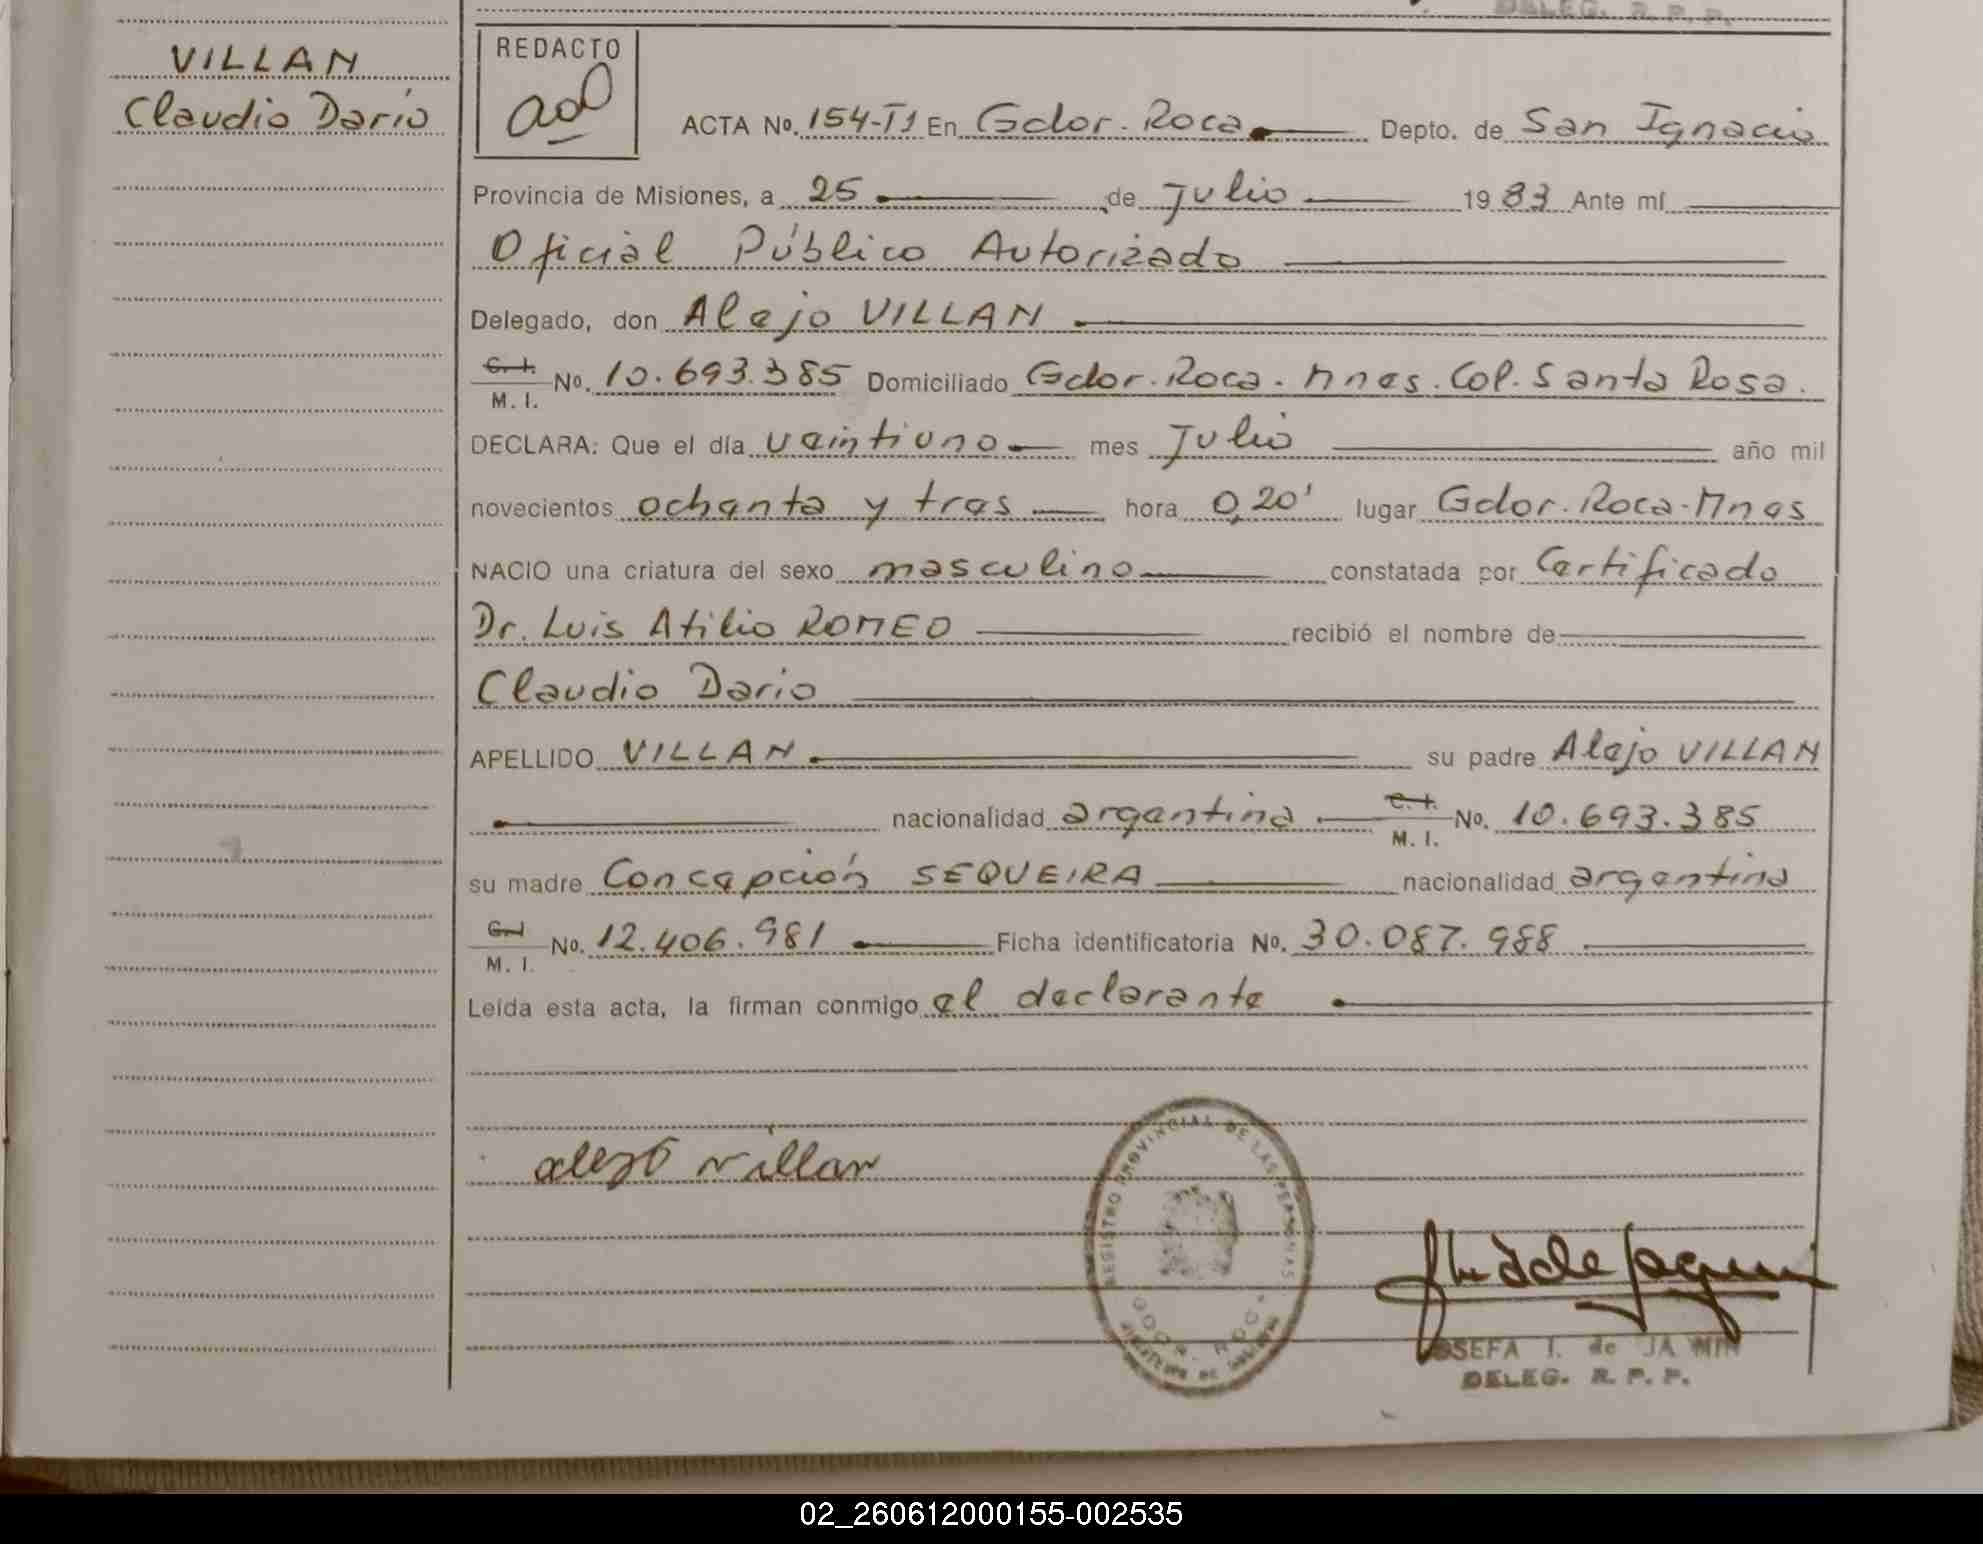 DELEG. R. P. P.
VILLAN
Claudio Darío
REDACTO
ACTA Nº. 154-T1 En Gdor. Roca Depto. de San Ignacio
Provincia de Misiones, a 25 de Julio 19 83 Ante mí
Oficial Público Autorizado
Delegado, don Alejo VILLAN
C. I.
M. I. Nº. 10.693.385 Domiciliado Gdor. Roca. Mnes. Col. Santa Rosa.
DECLARA: Que el día veintiuno mes Julio año mil
novecientos ochenta y tres hora 0,20' lugar Gdor. Roca-Mnes
NACIO una criatura del sexo masculino constatada por Certificado
Dr. Luis Atilio ROMEO recibió el nombre de
Claudio Dario
APELLIDO VILLAN su padre Alejo VILLAN
nacionalidad argentina C. I.
M. I. Nº. 10.693.385
su madre Concepción SEQUEIRA nacionalidad argentina
C. I.
M. I. Nº. 12.406.981 Ficha identificatoria Nº. 30.087.988
Leída esta acta, la firman conmigo el declarante
alejo villan
REGISTRO PROVINCIAL DE LAS PERSONAS
GDOR. ROCA
JOSEFA I. de JA MIN
DELEG. R. P. P.
02_260612000155-002535